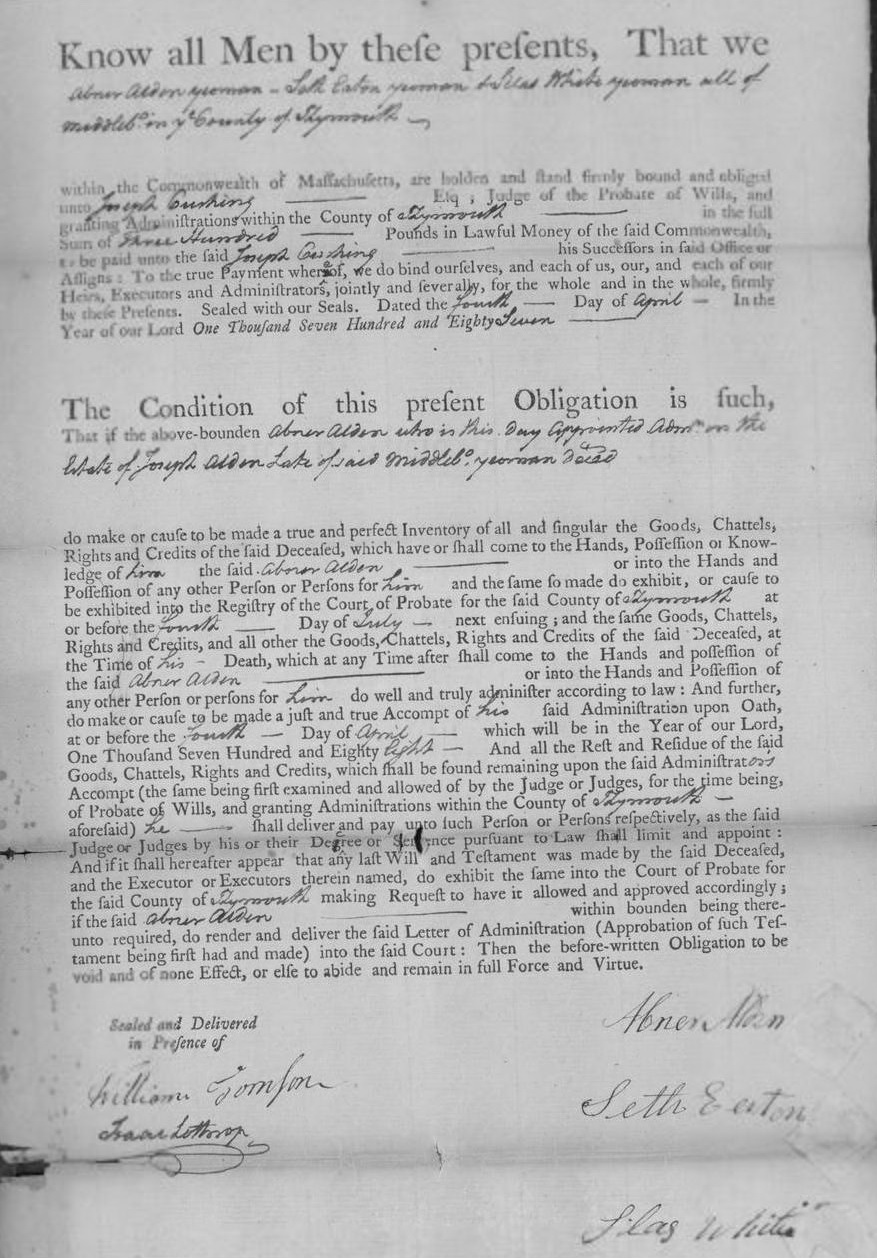 Know all Men by theſe preſents, That we
Abner Alden yeoman - Seth Eaton yeoman & Silas White yeoman all of
Middleb.o in y.e County of Plymouth
within the Commonwealth of Maſſachuſetts, are holden and ſtand firmly bound and obliged
unto Joseph Cushing Eſq ; Judge of the Probate of Wills, and
granting Adminiſtrations within the County of Plymouth in the full
Sum of Three Hundred Pounds in Lawful Money of the ſaid Commonwealth,
to be paid unto the ſaid Joseph Cushing his Succeſſors in ſaid Office or
Aſſigns : To the true Payment whereof, we do bind ourſelves, and each of us, our, and each of our
Heirs, Executors and Adminiſtrators, jointly and ſeverally, for the whole and in the whole, firmly
by theſe Preſents. Sealed with our Seals. Dated the fourth Day of April In the
Year of our Lord One Thouſand Seven Hundred and Eighty Seven
The Condition of this preſent Obligation is ſuch,
That if the above-bounden Abner Alden who is this Day Appointed Adm.r on the
Estate of Joseph Alden Late of said Middleb.o yeoman Deced
do make or cauſe to be made a true and perfect Inventory of all and ſingular the Goods, Chattels,
Rights and Credits of the ſaid Deceaſed, which have or ſhall come to the Hands, Poſſeſſion or Know-
ledge of him the ſaid Abner Alden or into the Hands and
Poſſeſſion of any other Perſon or Perſons for him and the ſame ſo made do exhibit, or cauſe to
be exhibited into the Regiſtry of the Court of Probate for the ſaid County of Plymouth at
or before the fourth Day of July next enſuing ; and the ſame Goods, Chattels,
Rights and Credits, and all other the Goods, Chattels, Rights and Credits of the ſaid Deceaſed, at
the Time of his Death, which at any Time after ſhall come to the Hands and poſſeſſion of
the ſaid Abner Alden or into the Hands and Poſſeſſion of
any other Perſon or perſons for him do well and truly adminiſter according to law : And further,
do make or cauſe to be made a juſt and true Accompt of his ſaid Adminiſtration upon Oath,
at or before the fourth Day of April, which will be in the Year of our Lord,
One Thouſand Seven Hundred and Eighty eight And all the Reſt and Reſidue of the ſaid
Goods, Chattels, Rights and Credits, which ſhall be found remaining upon the ſaid Adminiſtrators
Accompt (the ſame being firſt examined and allowed of by the Judge or Judges, for the time being,
of Probate of Wills, and granting Adminiſtrations within the County of Plymouth
aforeſaid) he ſhall deliver and pay unto ſuch Perſon or Perſons reſpectively, as the ſaid
Judge or Judges by his or their Degree or Sentence purſuant to Law ſhall limit and appoint :
And if it ſhall hereafter appear that any laſt Will and Teſtament was made by the ſaid Deceaſed,
and the Executor or Executors therein named, do exhibit the ſame into the Court of Probate for
the ſaid County of Plymouth making Requeſt to have it allowed and approved accordingly ;
if the ſaid Abner Alden within bounden being there-
unto required, do render and deliver the ſaid Letter of Adminiſtration (Approbation of ſuch Teſ-
tament being firſt had and made) into the ſaid Court : Then the before-written Obligation to be
void and of none Effect, or elſe to abide and remain in full Force and Virtue.
Sealed and Delivered
in Preſence of
Abner Alden
William Tomſon
Seth Eaton
Isaac Lothrop
Silas White